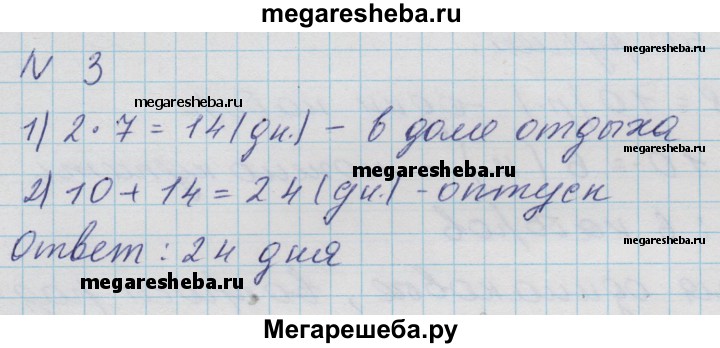 megaresheba.ru
N 3
megaresheba.ru
megaresheba.ru
1) 2 · 7 = 14 (дн.) - в доме отдыха
megaresheba.ru
2) 10 + 14 = 24 (дн.) - оптуск
Ответ: 24 дня
megaresheba.ru
megaresheba.ru
Мегарешеба.ру